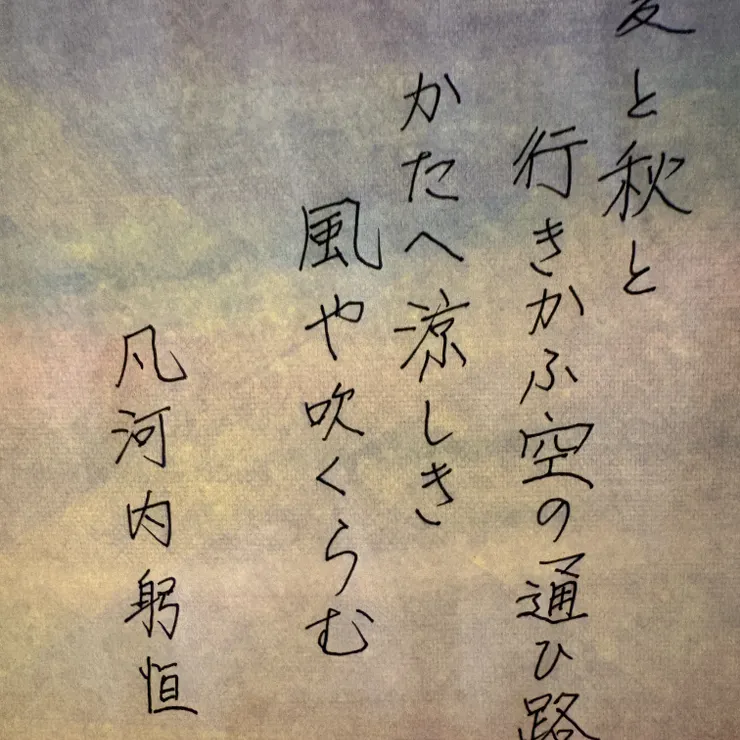 夏と秋と
行きかふ空の通ひ路
かたへ涼しき
風や吹くらむ
凡河内躬恒